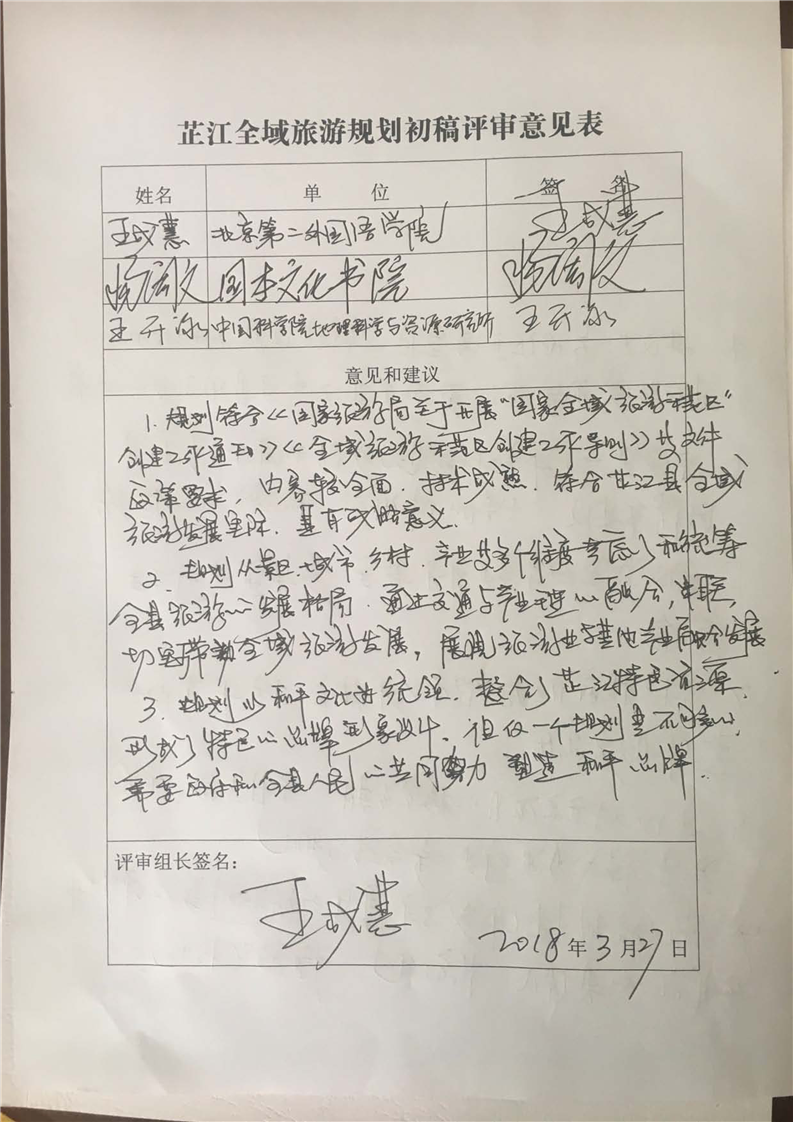 芷江全域旅游规划初稿评审意见表
姓名 单 位 签 名
王成慧 北京第二外国语学院 王成慧
国本文化书院
王开泳 中国科学院地理科学与资源研究所 王开泳
意见和建议
1. 规划符合《国家旅游局关于开展"国家全域旅游示范区"
创建工作通知》《全域旅游示范区创建工作导则》等文件
政策要求，内容较全面，技术成熟，符合芷江县全域
旅游发展实际，具有战略意义。
2. 规划从景区、城市、乡村、产业等多个维度考虑了和统筹
全县旅游的发展格局，通过交通与产业的融合，串联，
切实带动全域旅游发展，展现旅游业与其他产业融合发展
3. 规划以和平文化为统领，整合了芷江特色资源，
形成了特色的品牌形象设计。但仅一个规划是不够的，
需要政府和全县人民的共同努力 塑造 和平品牌.
评审组长签名：
王成慧
2018年3月27日